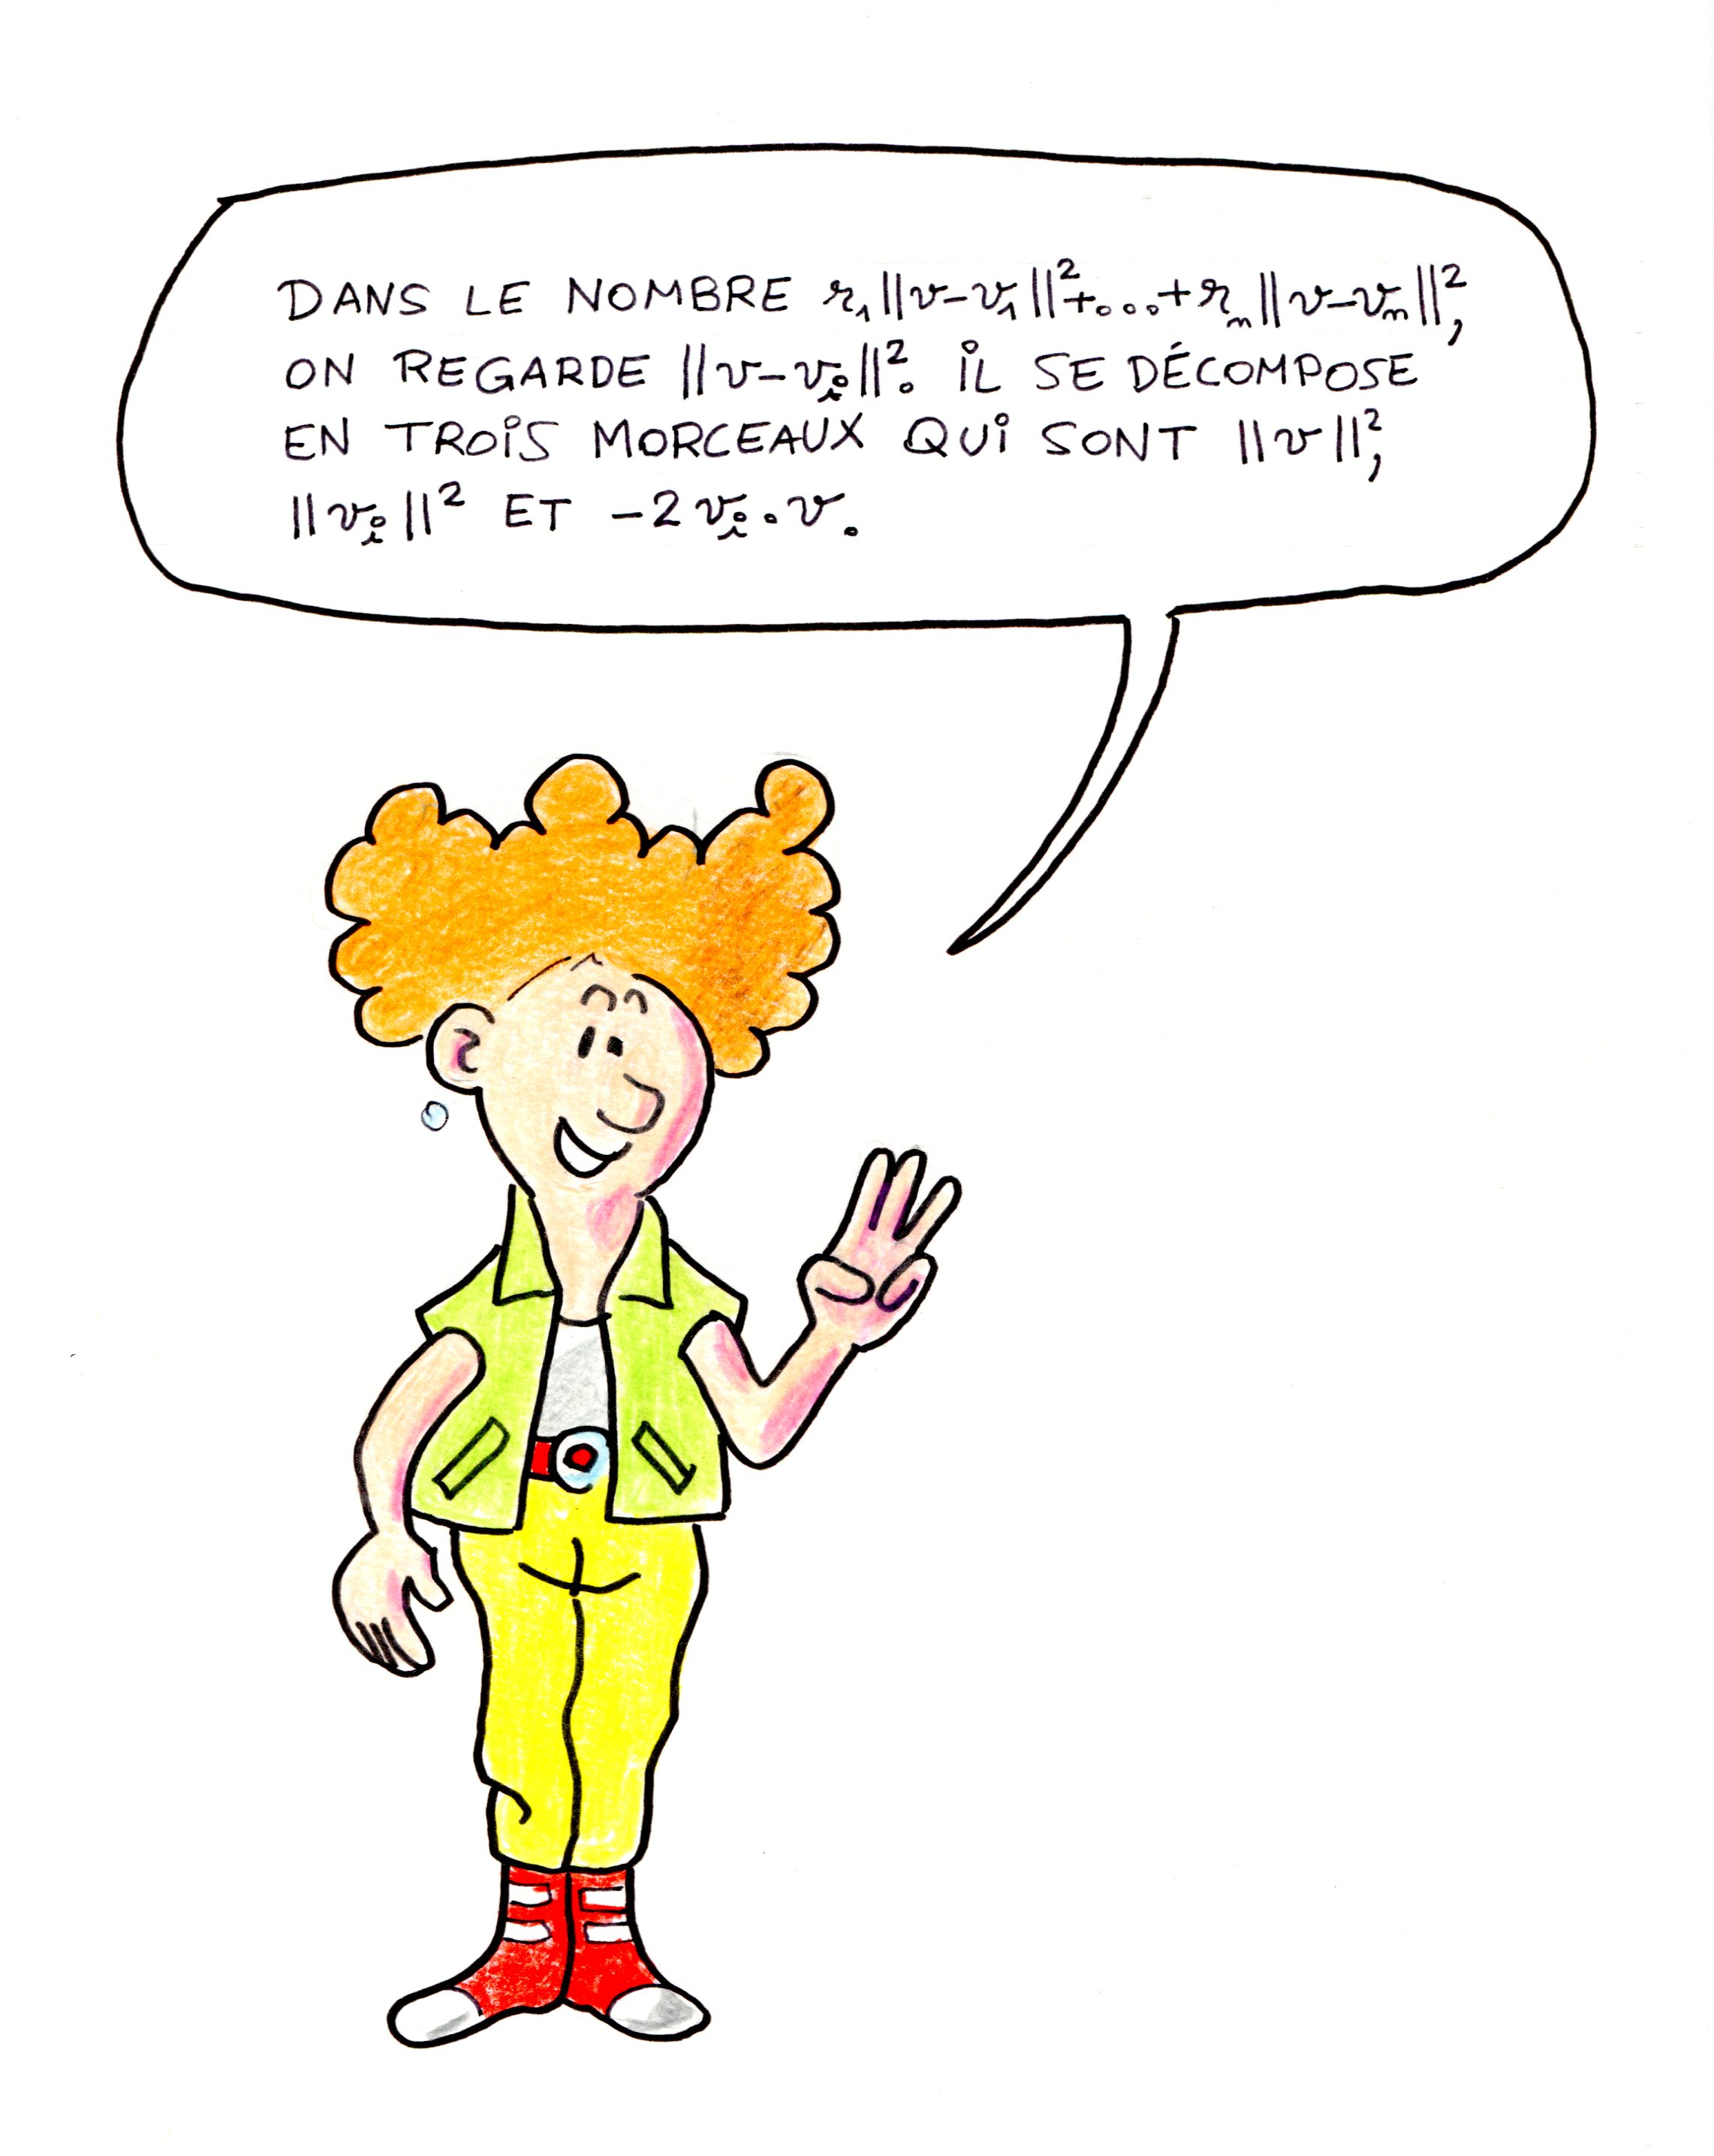 DANS LE NOMBRE r₁||v-v₁||²+...+rₙ||v-vₙ||²,
ON REGARDE ||v-vᵢ||². IL SE DÉCOMPOSE
EN TROIS MORCEAUX QUI SONT ||v||²,
||vᵢ||² ET -2vᵢ.v.